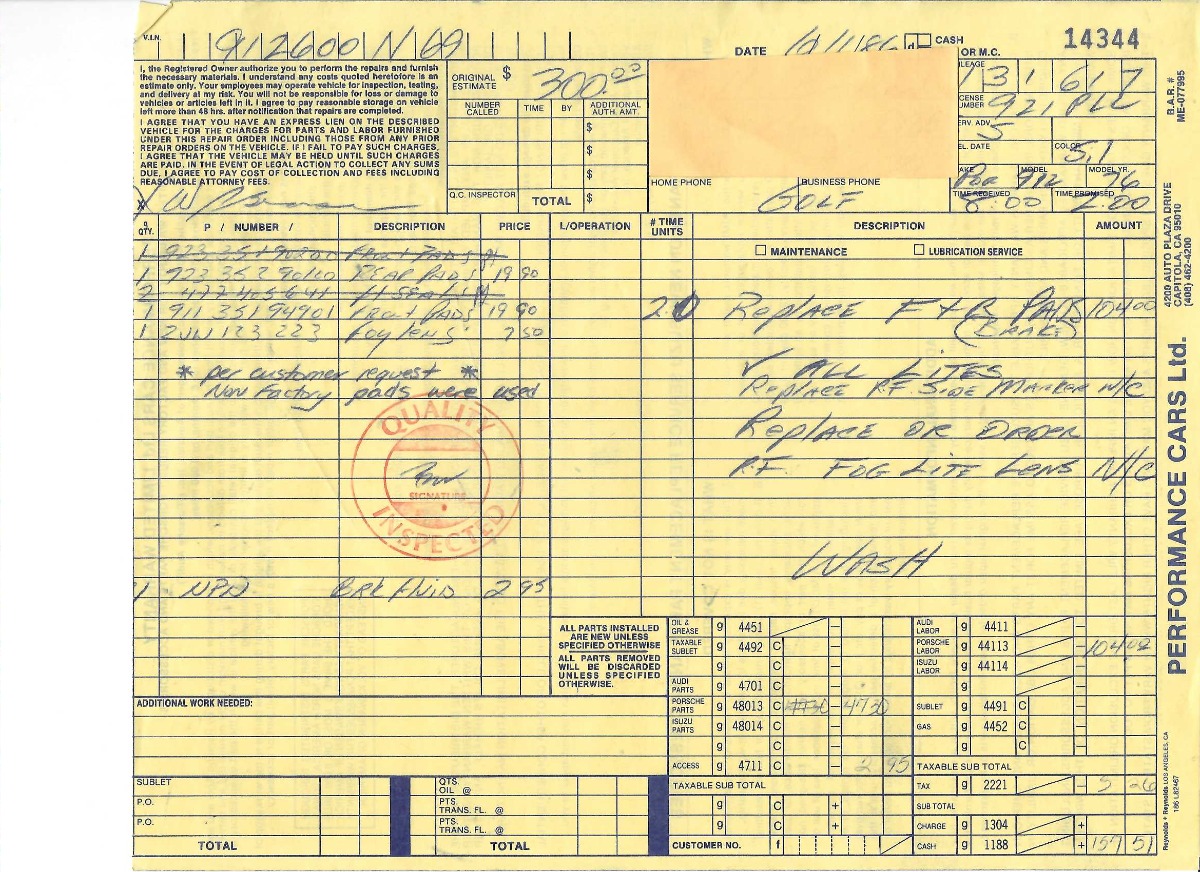 V.I.N. 912600 1169
DATE 10/1/86 CASH OR M.C. 14344
I, the Registered Owner authorize you to perform the repairs and furnish
the necessary materials. I understand any costs quoted heretofore is an
estimate only. Your employees may operate vehicle for inspection, testing,
and delivery at my risk. You will not be responsible for loss or damage to
vehicles or articles left in it. I agree to pay reasonable storage on vehicle
left more than 48 hrs. after notification that repairs are completed.
I AGREE THAT YOU HAVE AN EXPRESS LIEN ON THE DESCRIBED
VEHICLE FOR THE CHARGES FOR PARTS AND LABOR FURNISHED
UNDER THIS REPAIR ORDER INCLUDING THOSE FROM ANY PRIOR
REPAIR ORDERS ON THE VEHICLE. IF I FAIL TO PAY SUCH CHARGES,
I AGREE THAT THE VEHICLE MAY BE HELD UNTIL SUCH CHARGES
ARE PAID. IN THE EVENT OF LEGAL ACTION TO COLLECT ANY SUMS
DUE, I AGREE TO PAY COST OF COLLECTION AND FEES INCLUDING
REASONABLE ATTORNEY FEES.
X
ORIGINAL ESTIMATE $ 300.00
NUMBER CALLED TIME BY ADDITIONAL AUTH. AMT.
$
$
$
Q.C. INSPECTOR TOTAL $
HOME PHONE BUSINESS PHONE
GOLF
131 617
921 PLL
SERV. ADV. 5
DEL. DATE COLOR 5,1
MODEL MODEL YR.
Por 912 76
TIME RECEIVED TIME PROMISED
8:00 2:00
QTY. P / NUMBER / DESCRIPTION PRICE L/OPERATION # TIME UNITS DESCRIPTION AMOUNT
MAINTENANCE LUBRICATION SERVICE
1 923 352 90160 REAR PADS 19 90
1 911 351 94901 Front PADS 19 90
1 ZUN 123 223 Fog lens 7 50
* per customer request *
Non Factory pads were used
QUALITY
SIGNATURE
INSPECTED
1 NPN BRK Fluid 2 95
2.0 Replace F + R PADS 104 00
(BRAKE)
✓ ALL LITES
Replace R.F. Side Marker N/C
Replace or Order
R.F. Fog Lite Lens N/C
WASH
ALL PARTS INSTALLED
ARE NEW UNLESS
SPECIFIED OTHERWISE
ALL PARTS REMOVED
WILL BE DISCARDED
UNLESS SPECIFIED
OTHERWISE.
OIL & GREASE g 4451 –
TAXABLE SUBLET g 4492 C –
g C –
AUDI PARTS g 4701 C –
PORSCHE PARTS g 48013 C – 47 30
ISUZU PARTS g 48014 C –
g C –
ACCESS g 4711 C – 2 95
TAXABLE SUB TOTAL
g C +
g C +
CUSTOMER NO. f
AUDI LABOR g 4411 –
PORSCHE LABOR g 44113 – 104 00
ISUZU LABOR g 44114 –
g –
SUBLET g 4491 C
GAS g 4452 C
g C
TAXABLE SUB TOTAL
TAX g 2221 – 3 26
SUB TOTAL
CHARGE g 1304 +
CASH g 1188 + 157 51
ADDITIONAL WORK NEEDED:
SUBLET
P.O.
P.O.
TOTAL
QTS. OIL @
PTS. TRANS. FL. @
PTS. TRANS. FL. @
TOTAL
B.A.R. # ME-077995
4200 AUTO PLAZA DRIVE
CAPITOLA, CA 95010
(408) 462-4200
PERFORMANCE CARS Ltd.
Reynolds + Reynolds LOS ANGELES, CA
186 L82467